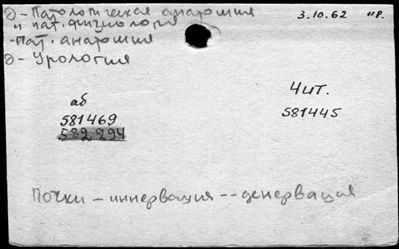 Э - Патологическая анатомия
и пат. физиология
3.10.62 нр.
- Пат. анатомия
Э - Урология
аб
581469
582294
Чит.
581445
Почки - иннервация -- денервация